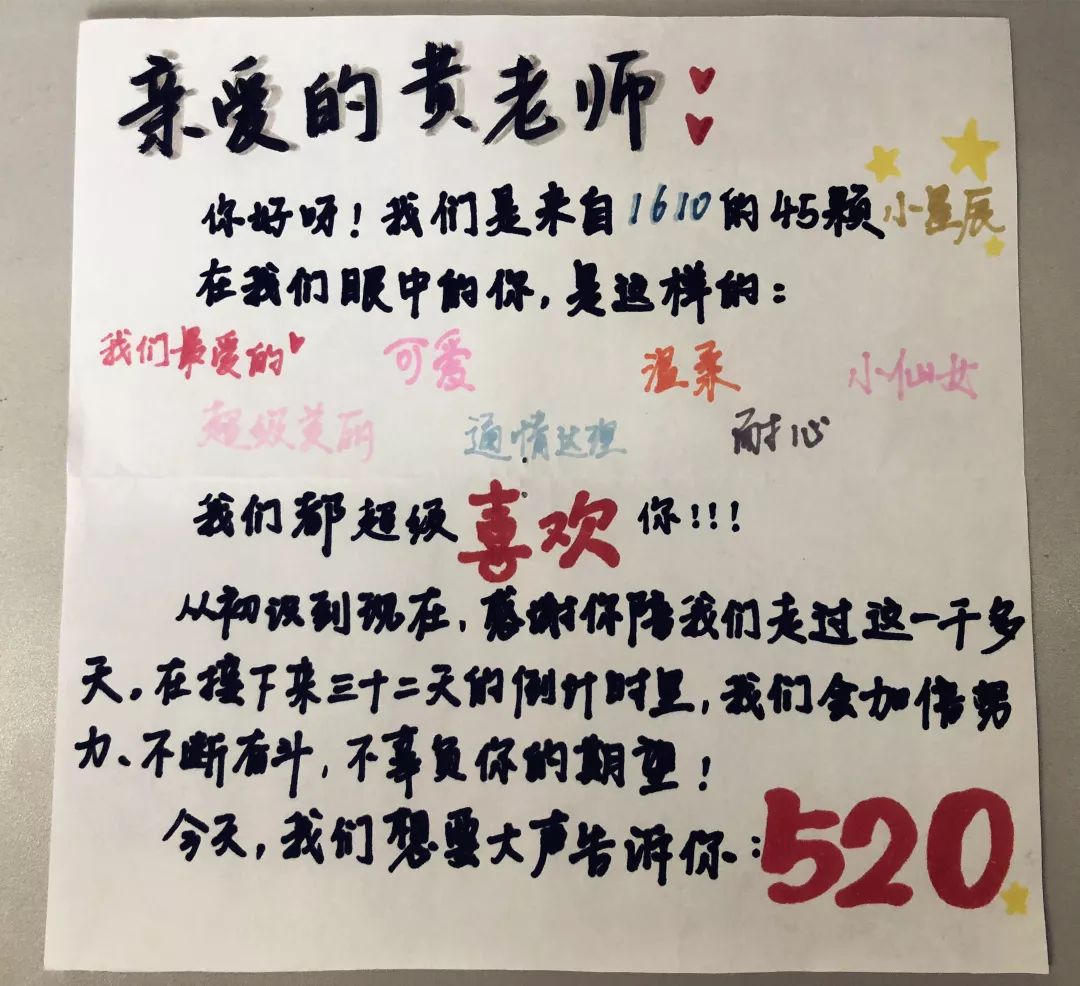 亲爱的黄老师
你好呀！我们是来自1610的45颗小星辰
在我们眼中的你，是这样的：
我们最爱的 可爱 温柔 小仙女
超级美丽 通情达理 耐心
我们都超级喜欢你!!!
从初识到现在，感谢你陪我们走过这一千多
天。在接下来三十二天的倒计时里，我们会加倍努
力、不断奋斗，不辜负你的期望！
今天，我们想要大声告诉你：520